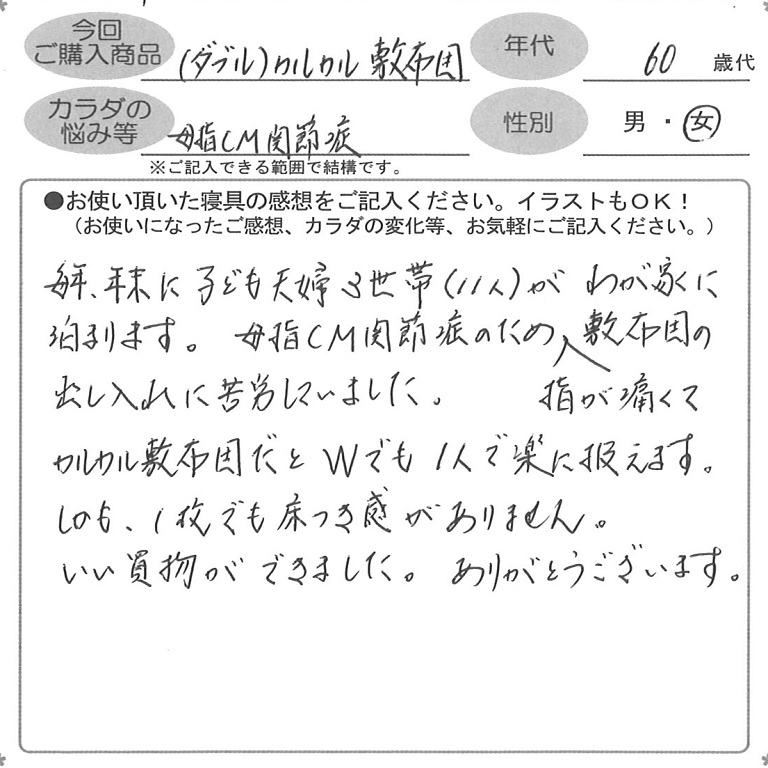 今回
ご購入商品
(ダブル)カルカル敷布団
年代
60 歳代
カラダの
悩み等
母指CM関節症
性別
男・女
※ご記入できる範囲で結構です。
●お使い頂いた寝具の感想をご記入ください。イラストもOK！
（お使いになったご感想、カラダの変化等、お気軽にご記入ください。）
毎年、年末に子ども夫婦3世帯(11人)がわが家に
泊まります。母指CM関節症のため敷布団の
出し入れに苦労していました。
指が痛くて
カルカル敷布団だとWでも1人で楽に扱えます。
しかも、1枚でも床つき感がありません。
いい買物ができました。ありがとうございます。